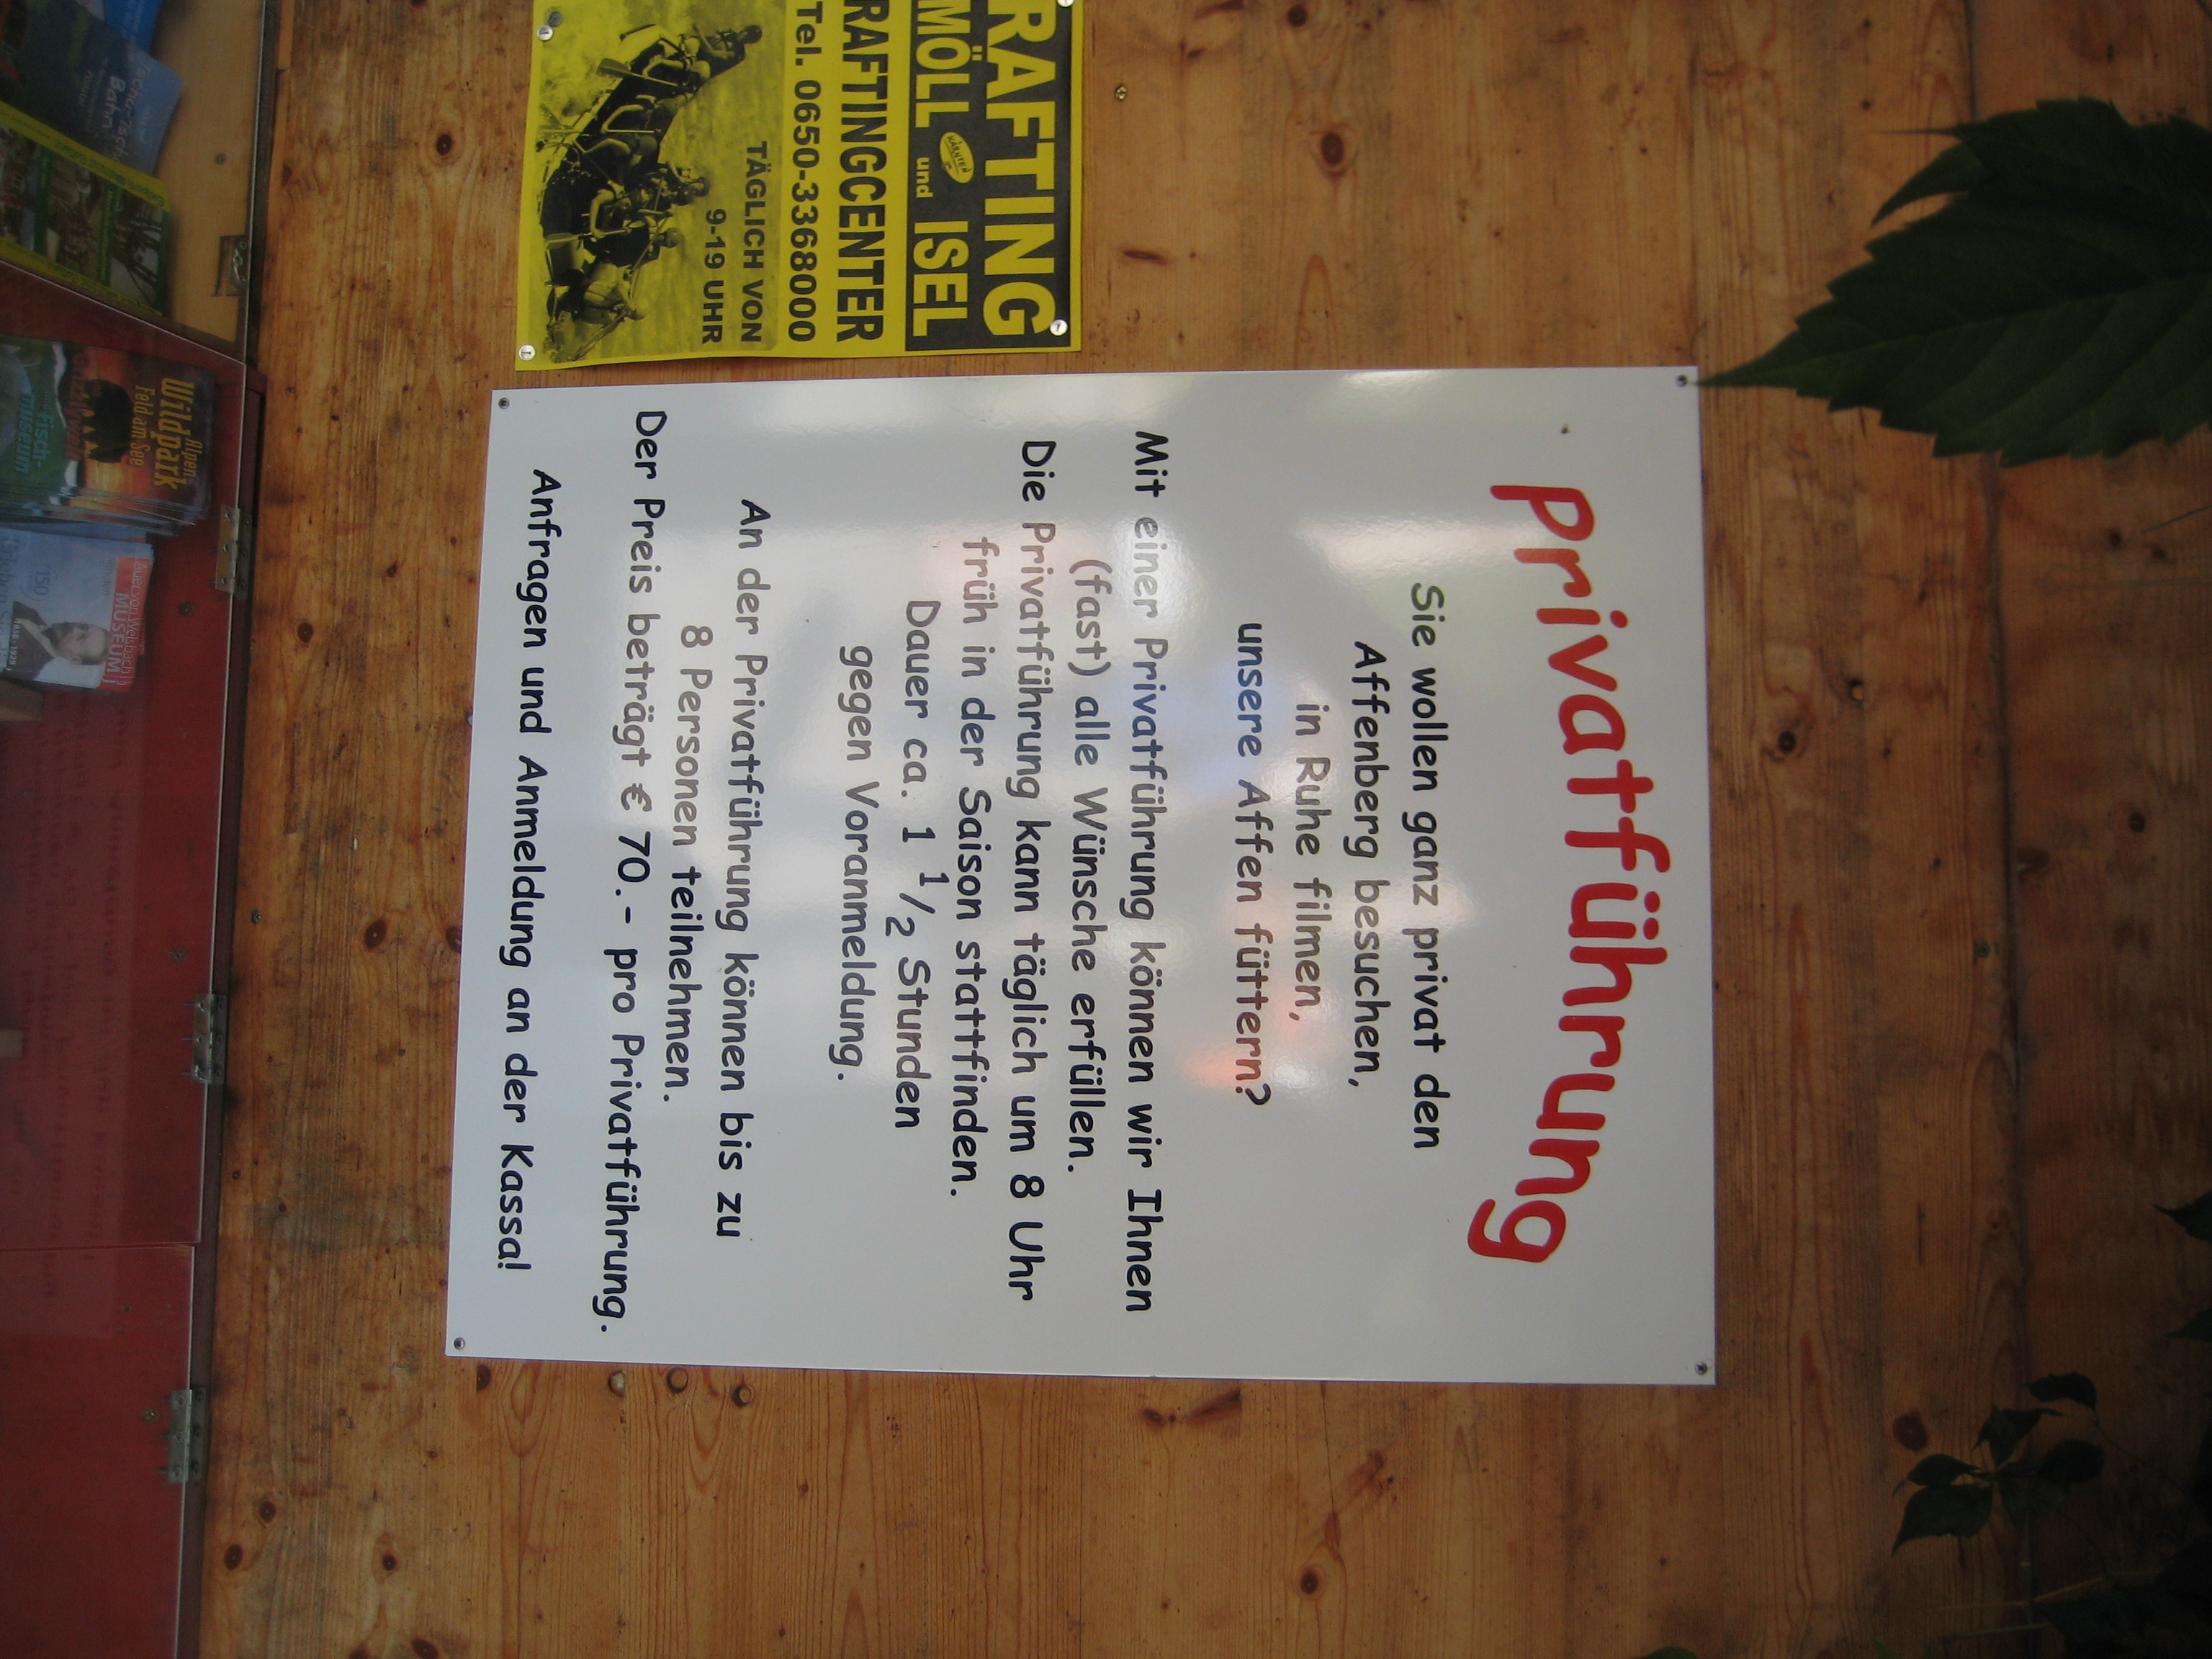 RAFTING
MÖLL und ISEL
KÄRNTEN
RAFTINGCENTER
Tel. 0650-3368000
TÄGLICH VON
9-19 UHR
Privatführung
Sie wollen ganz privat den
Affenberg besuchen,
in Ruhe filmen,
unsere Affen füttern?
Mit einer Privatführung können wir Ihnen
(fast) alle Wünsche erfüllen.
Die Privatführung kann täglich um 8 Uhr
früh in der Saison stattfinden.
Dauer ca. 1 1/2 Stunden
gegen Voranmeldung.
An der Privatführung können bis zu
8 Personen teilnehmen.
Der Preis beträgt € 70.- pro Privatführung.
Anfragen und Anmeldung an der Kassa!
Alpen
Wildpark
Feld am See
Fisch-
museum
Auer von Welsbach
MUSEUM
150